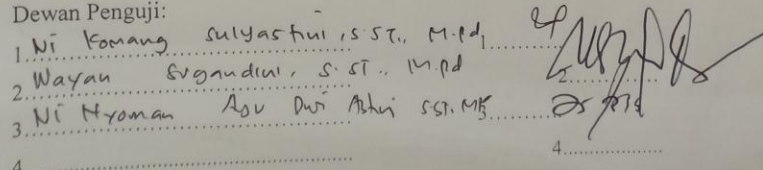 Dewan Penguji:
1. Ni Komang Sulyastini, S.ST., M.Pd 1
2. Wayan Sugandini, S.ST., M.Pd 2
3. Ni Nyoman Ayu Desi SST. M
4. 4